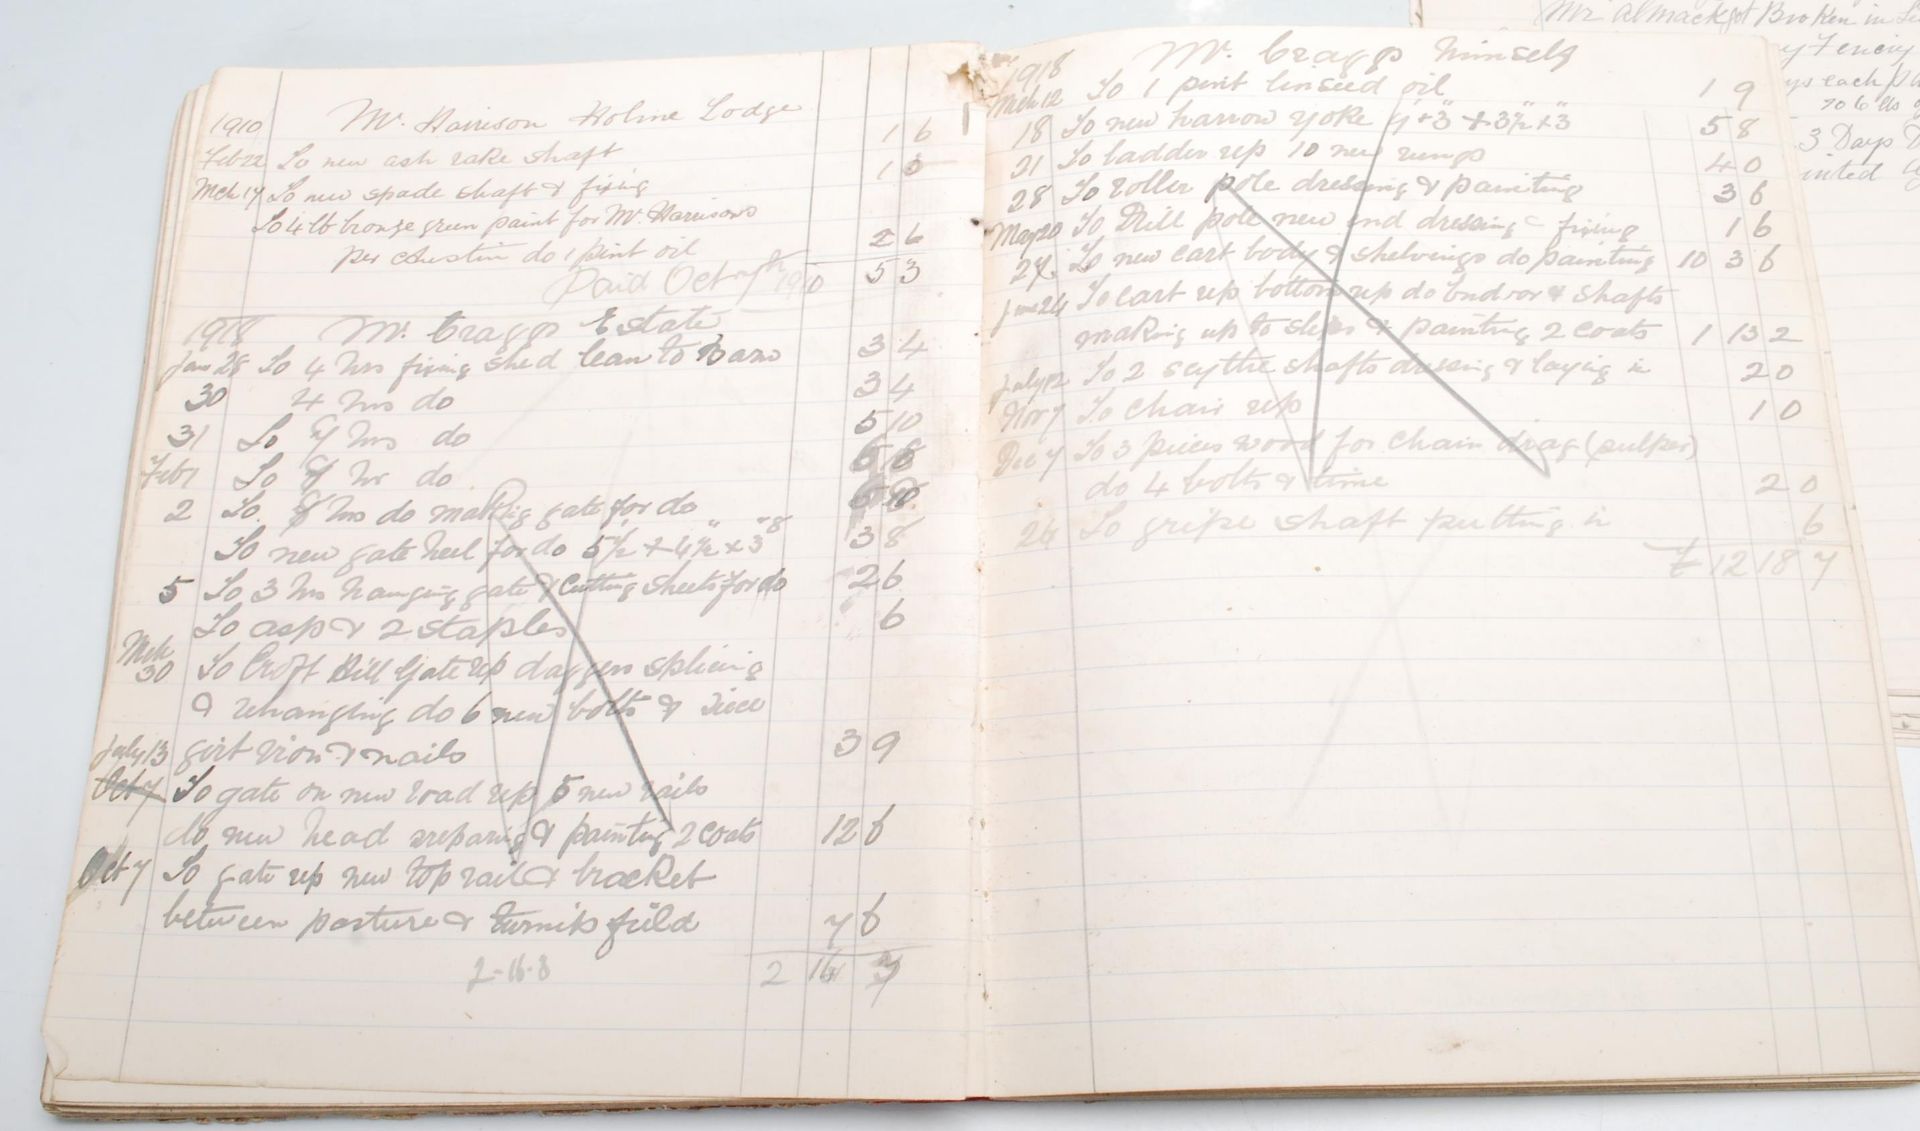 1910 Mr. Harrison Holme Lodge
Feb 22 To new ash rake shaft 1 6
Mch 17 To new spade shaft & fixing 1 3
To 4 lb bronze green paint for Mr. Harrisons
per Austin do 1 pint oil 2 6
Paid Oct 1910 5 3
1918 Mr. Cragg Estate
Jan 28 To 4 hrs fixing shed lean to barn 3 4
30 4 hrs do 3 4
31 To 7 hrs do 5 10
Feb 1 To hr do
2 To hrs do making gate for do
To new gate heel for do 5½ + 4½" + 3" 3 8
5 To 3 hrs hanging gate & cutting sheets for do 2 6
To asp & 2 staples 6
Mch 30 To Croft Hill Gate up daggers splicing
& rehanging do 6 new bolts &
July 13 girt iron & nails 3 9
Oct 7 To gate on new road up 5 new rails
do new head preparing & painting 2 coats 12 6
Oct 7 To gate up new top rail & bracket
between pasture & turnips field 7 6
2-16-8 2 16
1918 Mr. Cragg himself
Mch 12 To 1 pint linseed oil 1 9
18 To new harrow yoke 4 + 3" + 3½" + 3" 5 8
21 To ladder up 10 new rungs 4 0
28 To roller pole dressing & painting 3 6
May 20 To Drill pole new end dressing - fixing 1 6
27. To new cart body & shelvings do painting 10 3 6
June 24 To cart up bottom up do & shafts
making up to & painting 2 coats 1 13 2
July 12 To 2 scythe shafts dressing & laying in 2 0
Nov 7 To chair up 1 0
Dec 7 To 3 pieces wood for chain drag (pulper)
do 4 bolts & time 2 0
24 To gripe shaft putting in 6
£ 12 18 7
Mr Almack got Broken in
y Fencing
ys each
70 6 lbs
3 Days